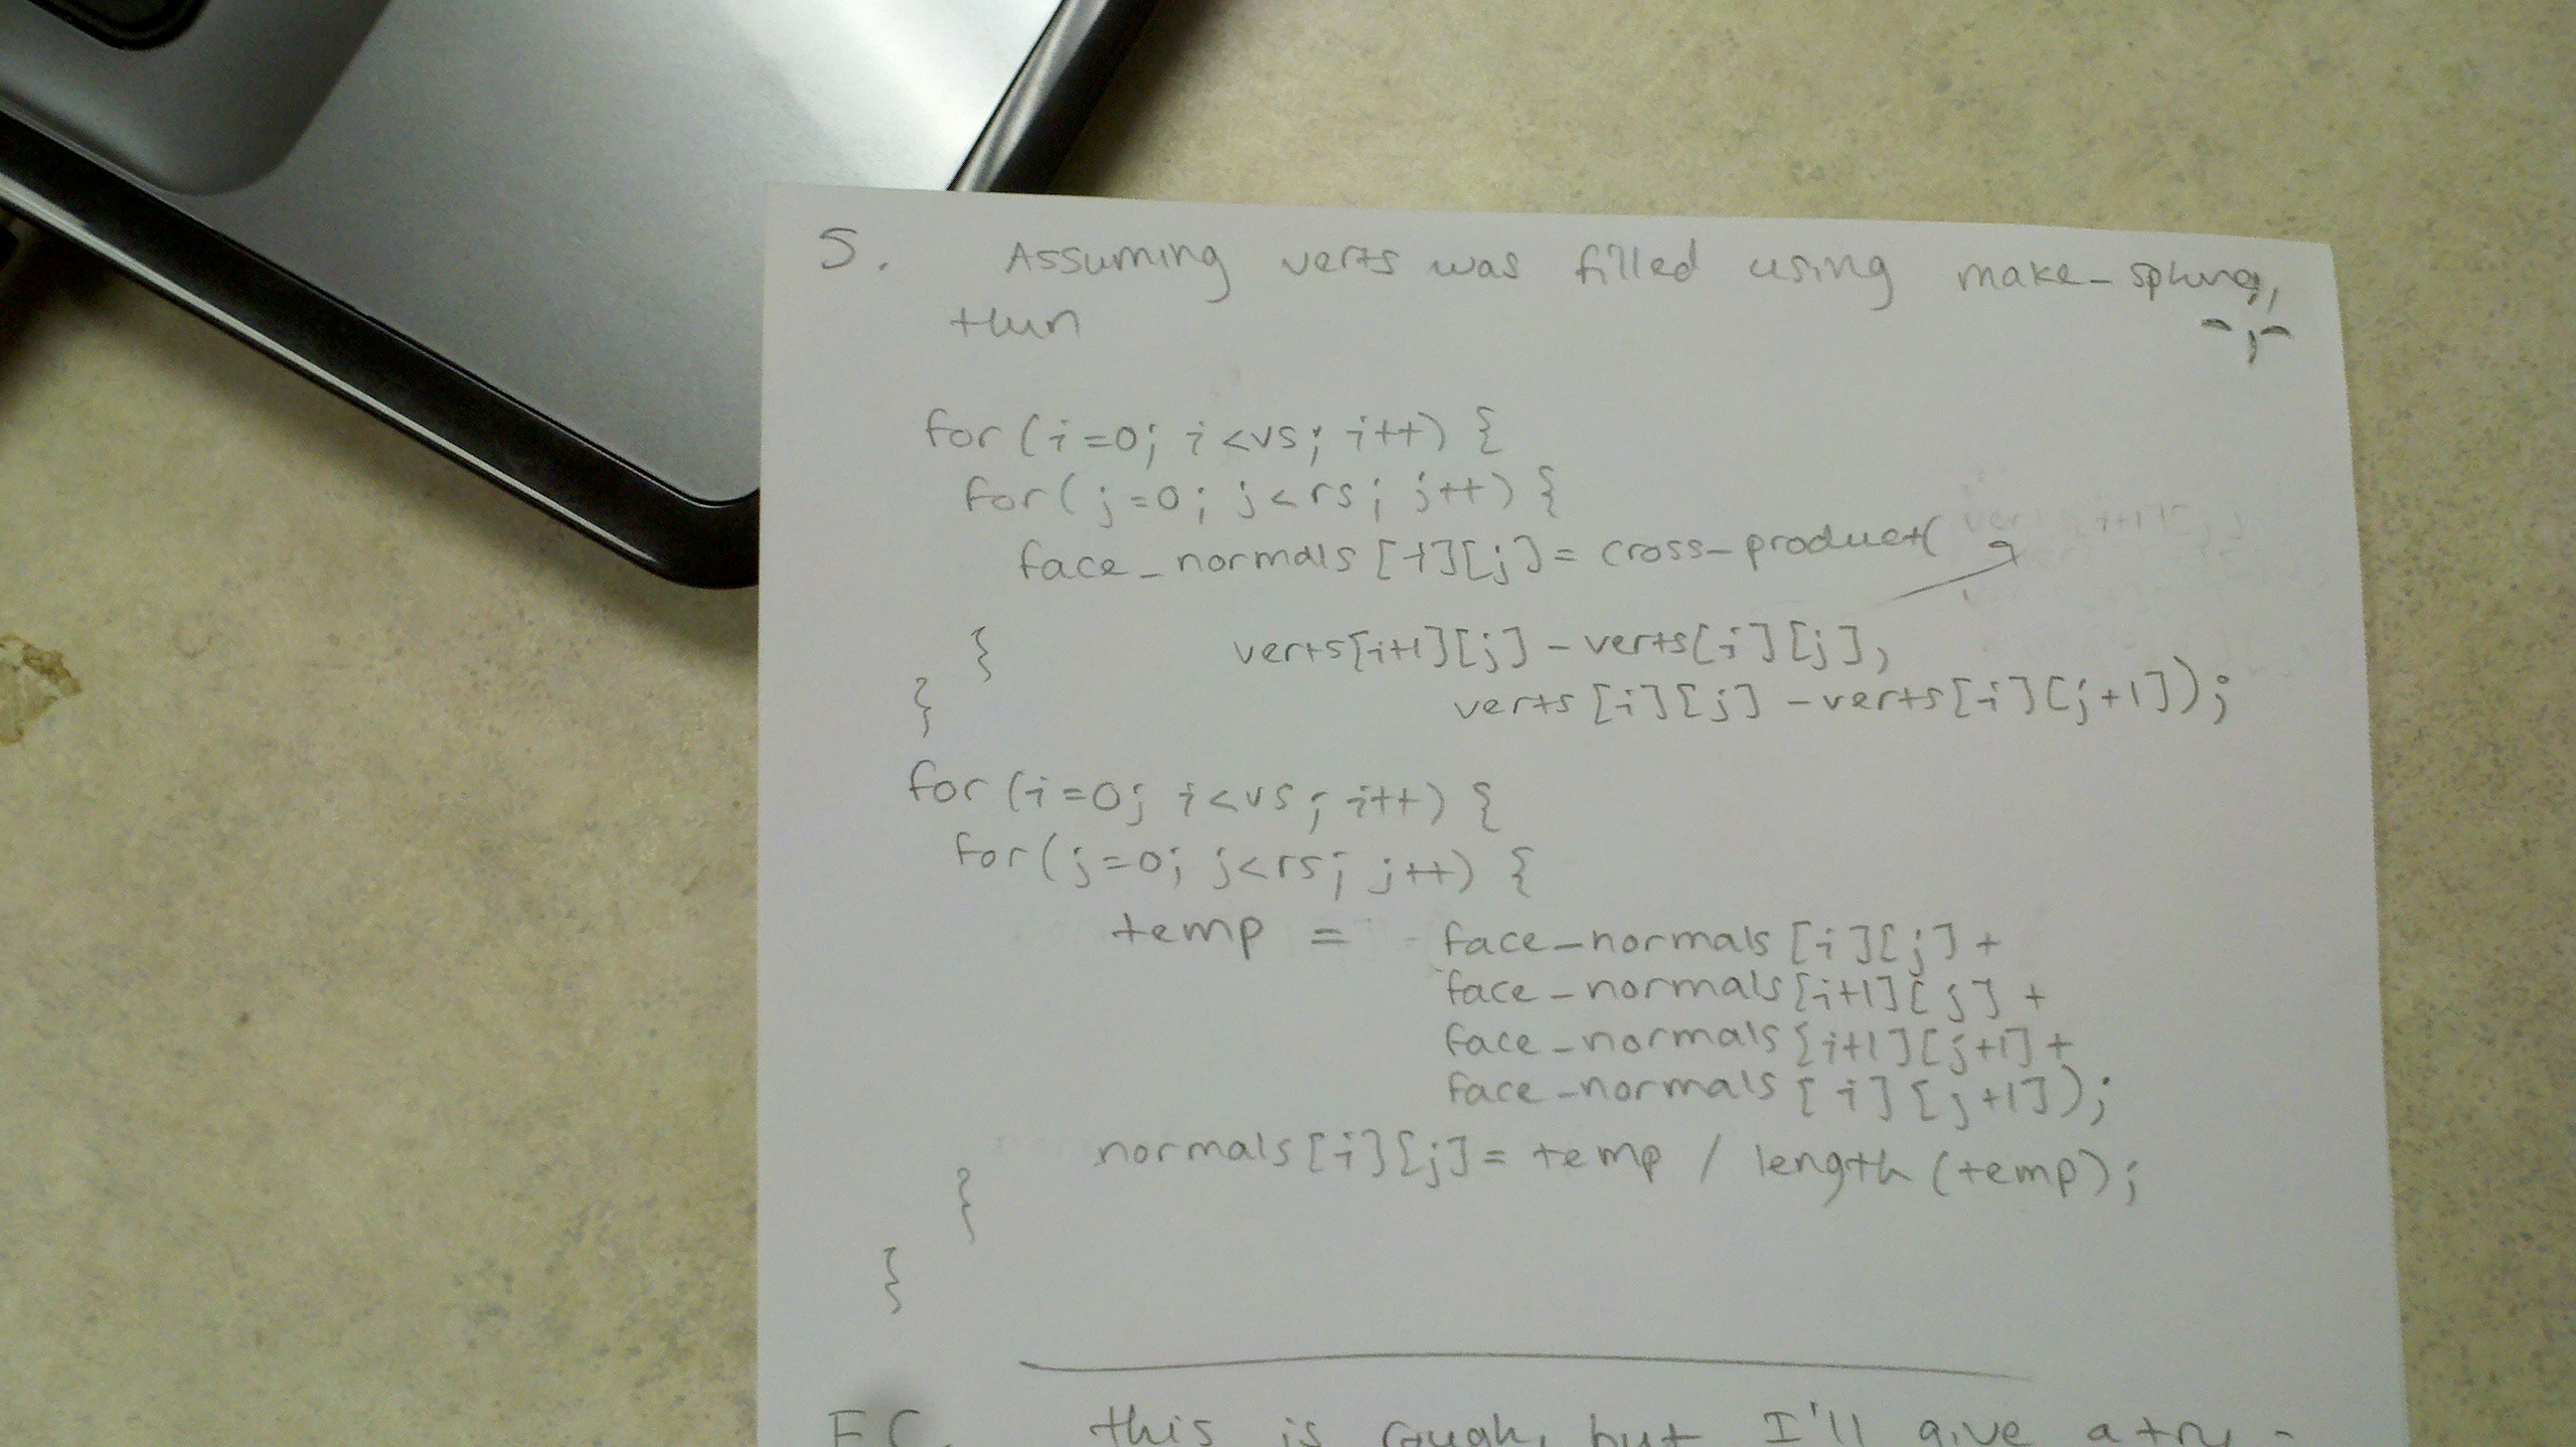 5. Assuming verts was filled using make_sphere,
then
for (i=0; i<vs; i++) {
for (j=0; j<rs; j++) {
face_normals [i][j] = cross_product(
} verts[i+1][j] - verts[i][j],
} verts[i][j] - verts[i][j+1]);
for (i=0; i<vs; i++) {
for (j=0; j<rs; j++) {
temp = face_normals [i][j] +
face_normals [i+1][j] +
face_normals [i+1][j+1] +
face_normals [i][j+1]);
normals[i][j] = temp / length (temp);
}
}
EC. this is rough, but I'll give a try -